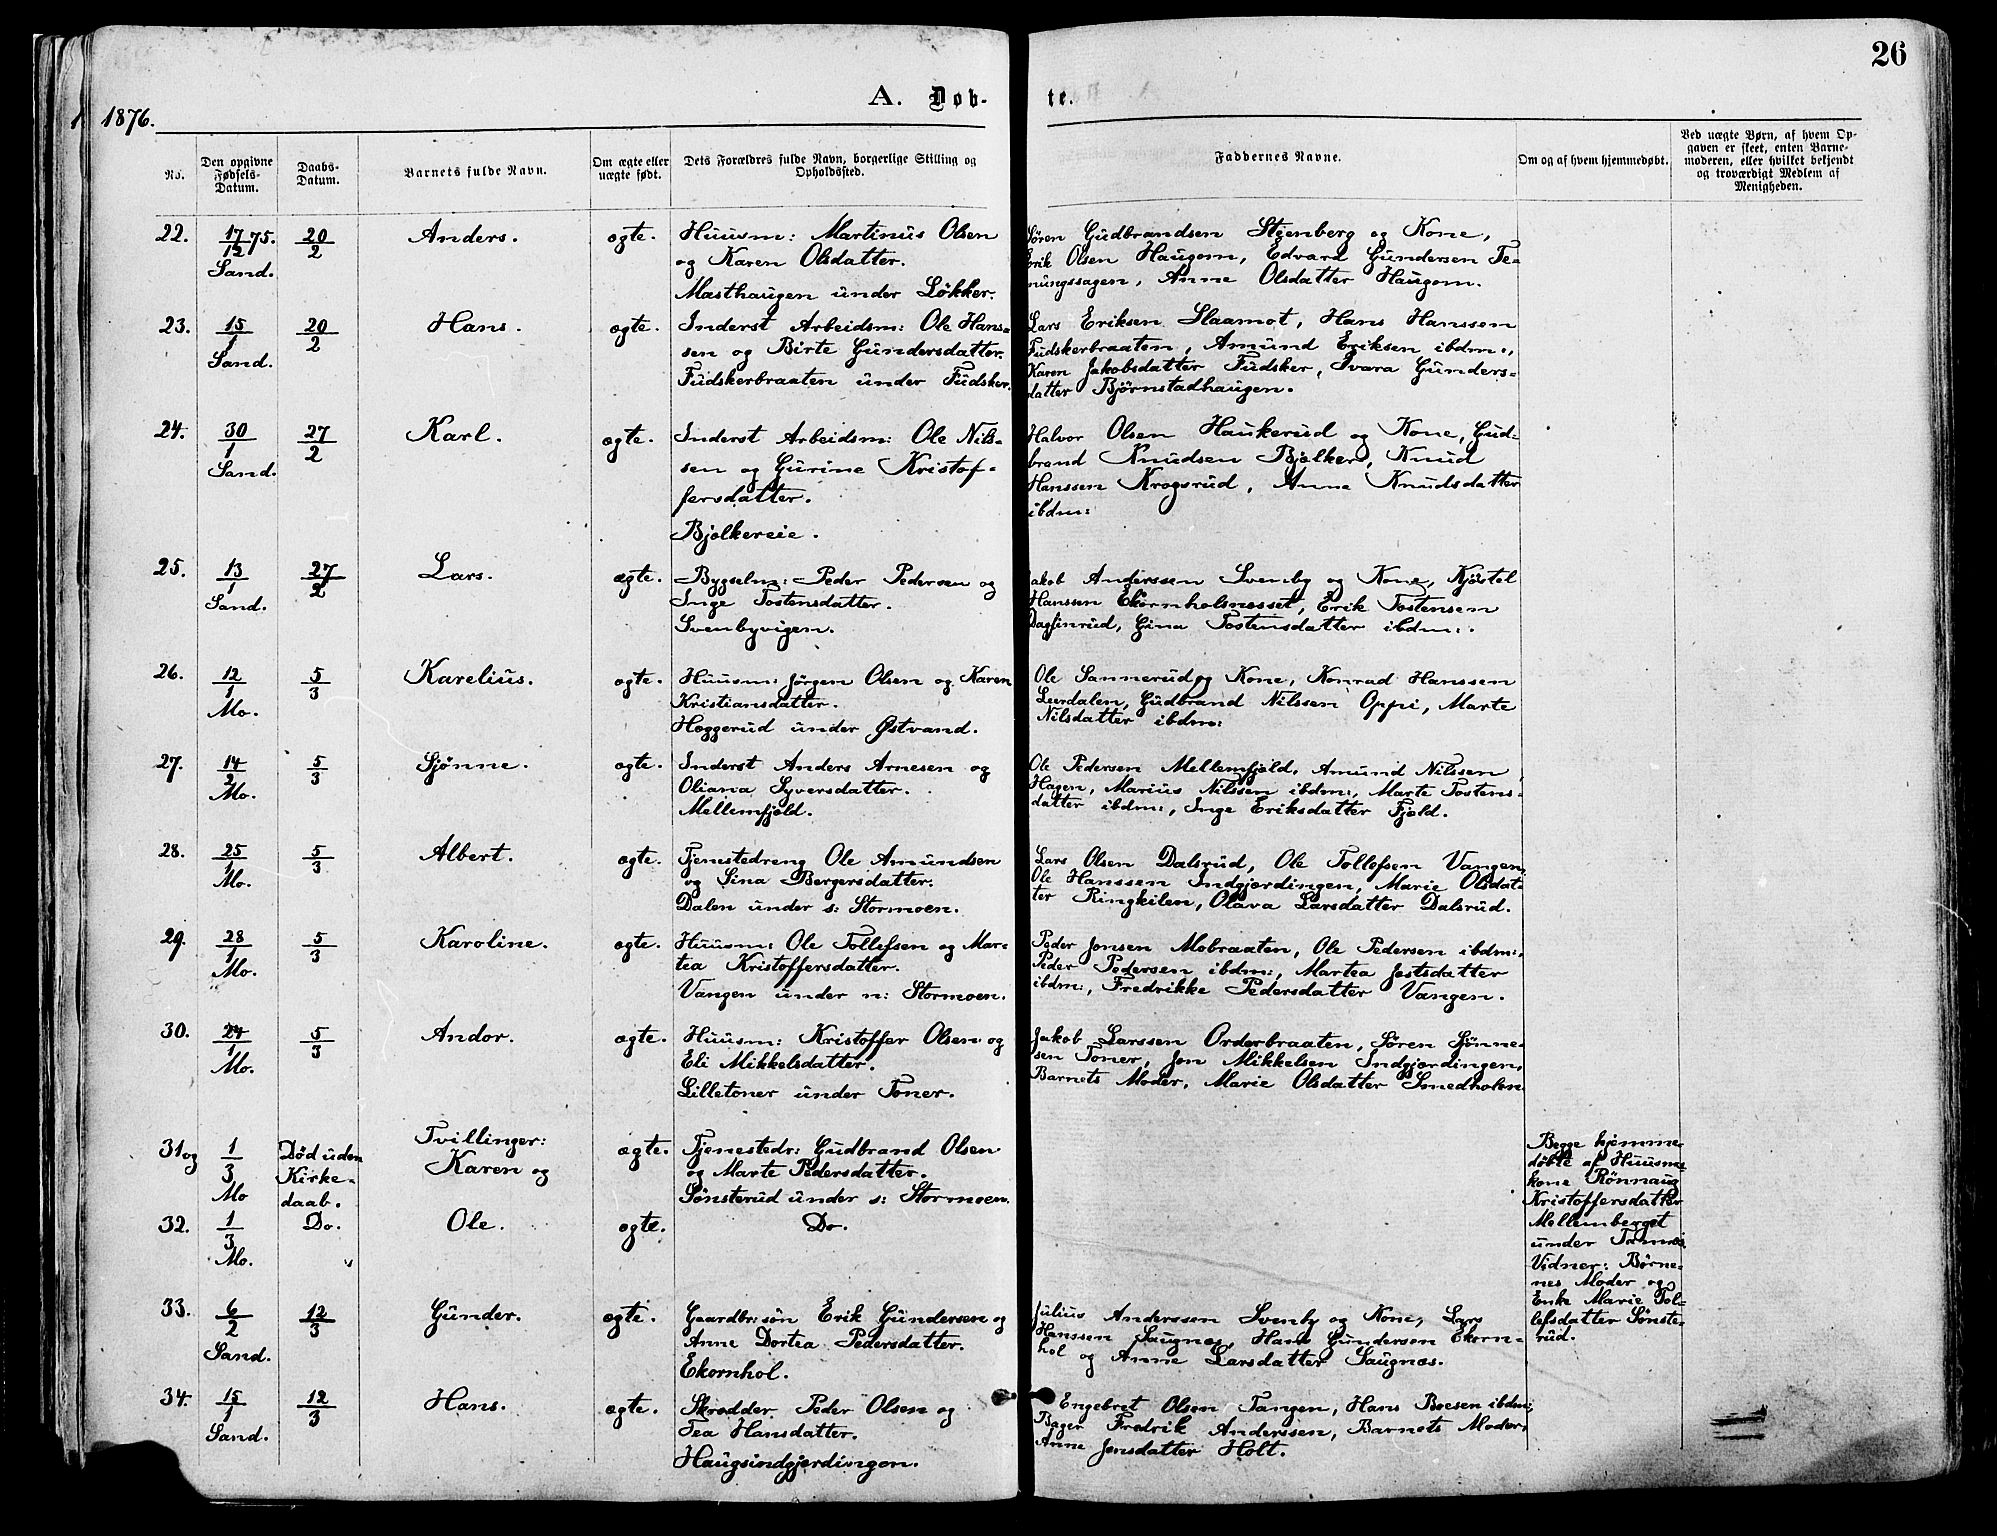 26
A. Døb-
te.
1876.
No.
Den opgivne Fødsels-Datum.
Daabs-Datum.
Barnets fulde Navn.
Om ægte eller uægte født.
Dets Forældres fulde Navn, borgerlige Stilling og Opholdssted.
Faddernes Navne.
Om og af hvem hjemmedøbt.
Ved uægte Børn, af hvem Op-
gaven er skeet, enten Barne-
moderen, eller hvilket bekjendt
og troværdigt Medlem af
Menigheden.
22. 17/12 75. Sand. 20/2 Anders. ægte.
Huusm: Martinus Olsen
og Karen Olsdatter.
Masthaugen under Løkker.
Søren Gudbrandsen Stenberg og Kone,
Erik Olsen Haugom, Edvard Gundersen Te-
nungssagen, Anne Olsdatter Haugom.
23. 15/1 Sand. 20/2 Hans. ægte.
Inderst Arbeidsm: Ole Hans-
sen og Birte Gundersdatter.
Fudskerbraaten under Fudsker.
Lars Eriksen Slaamot, Hans Hanssen
Fudskerbraaten, Amund Eriksen ibdm:,
Karen Jakobsdatter Fudsker, Ivara Gunders-
datter Bjørnstadhaugen.
24. 30/1 Sand. 27/2 Karl. ægte.
Inderst Arbeidsm: Ole Nils-
sen og Gurine Kristof-
fersdatter.
Bjølkereie.
Halvor Olsen Haukerud og Kone, Gud-
brand Knudsen Bjølker, Knud
Hanssen Krogsrud, Anne Knudsdatter
ibdm:
25. 13/1 Sand. 27/2 Lars. ægte.
Bygselm: Peder Pedersen og
Inge Tostensdatter.
Svenbyvigen.
Jakob Anderssen Svenby og Kone, Kjøstel
Hanssen Ekornholsnesset, Erik Tostensen
Dagfinrud, Gina Tostensdatter ibdm:.
26. 12/1 Mo. 5/3 Karelius. ægte.
Huusm: Jørgen Olsen og Karen
Kristiansdatter.
Heggerud under Østvand.
Ole Sannerud og Kone, Konrad Hanssen
Leerdalen, Gudbrand Nilssen Oppi, Marte
Nilsdatter ibdm:
27. 14/2 Mo. 5/3 Sjønne. ægte.
Inderst Anders Arnesen og
Oliana Syversdatter.
Mellemfjeld.
Ole Pedersen Mellemfjeld, Amund Nilssen
Hagen, Marius Nilssen ibdm:, Marte Tostens-
datter ibdm:, Inge Eriksdatter Fjeld.
28. 25/1 Mo. 5/3 Albert. ægte.
Tjenestedreng Ole Amundsen
og Sina Bergersdatter.
Dalen under s: Stormoen.
Lars Olsen Dalsrud, Ole Tollefsen Vangen,
Ole Hanssen Indgjærdingen, Marie Olsdat-
ter Ringkilen, Olava Larsdatter Dalsrud.
29. 28/1 Mo. 5/3 Karoline. ægte.
Huusm: Ole Tollefsen og Mar-
tea Kristoffersdatter.
Vangen under n: Stormoen.
Peder Jonsen Mobraaten, Ole Pedersen ibdm:,
Peder Pedersen ibdm:, Martea Jostsdatter
ibdm:, Fredrikke Pedersdatter Vangen.
30. 24/1 Mo. 5/3 Andor. ægte.
Huusm: Kristoffer Olsen og
Eli Mikkelsdatter.
Lilletoner under Toner.
Jakob Larssen Orderbraaten, Søren Sjønne-
sen Toner, Jon Mikkelsen Indgjærdingen,
Barnets Moder, Marie Olsdatter Smedholen
31 og 1/3 Mo Død uden Kirke-daab. Tvillinger: Karen og ægte.
Tjenestedr: Gudbrand Olsen
og Marte Pedersdatter.
Sønsterud under s: Stormoen.
Begge hjemme-
døbte af Huusm:
kone Rønnaug
Kristoffersdatter
Mellemberget
under Tannæs.
Vidner: Børne-
nes Moder og
Enke Marie Tol-
lefsdatter Sønste-
rud.
32. 1/3 Mo. Do. Ole. ægte. Do.
33. 6/2 Sand. 12/3 Gunder. ægte.
Gaardbr:søn Erik Gundersen og
Anne Dortea Pedersdatter.
Ekornhol.
Julius Anderssen Svenby og Kone, Lars
Hanssen Saugnæs, Hans Gundersen Ekorn-
hol og Anne Larsdatter Saugnæs.
34. 15/1 Sand. 12/3 Hans. ægte.
Skrædder Peder Olsen og
Tea Hansdatter.
Haugsindgjærdingen.
Engebret Olsen Tangen, Hans Boesen ibdm:,
Bager Fredrik Anderssen, Barnets Moder,
Anne Jensdatter Holt.